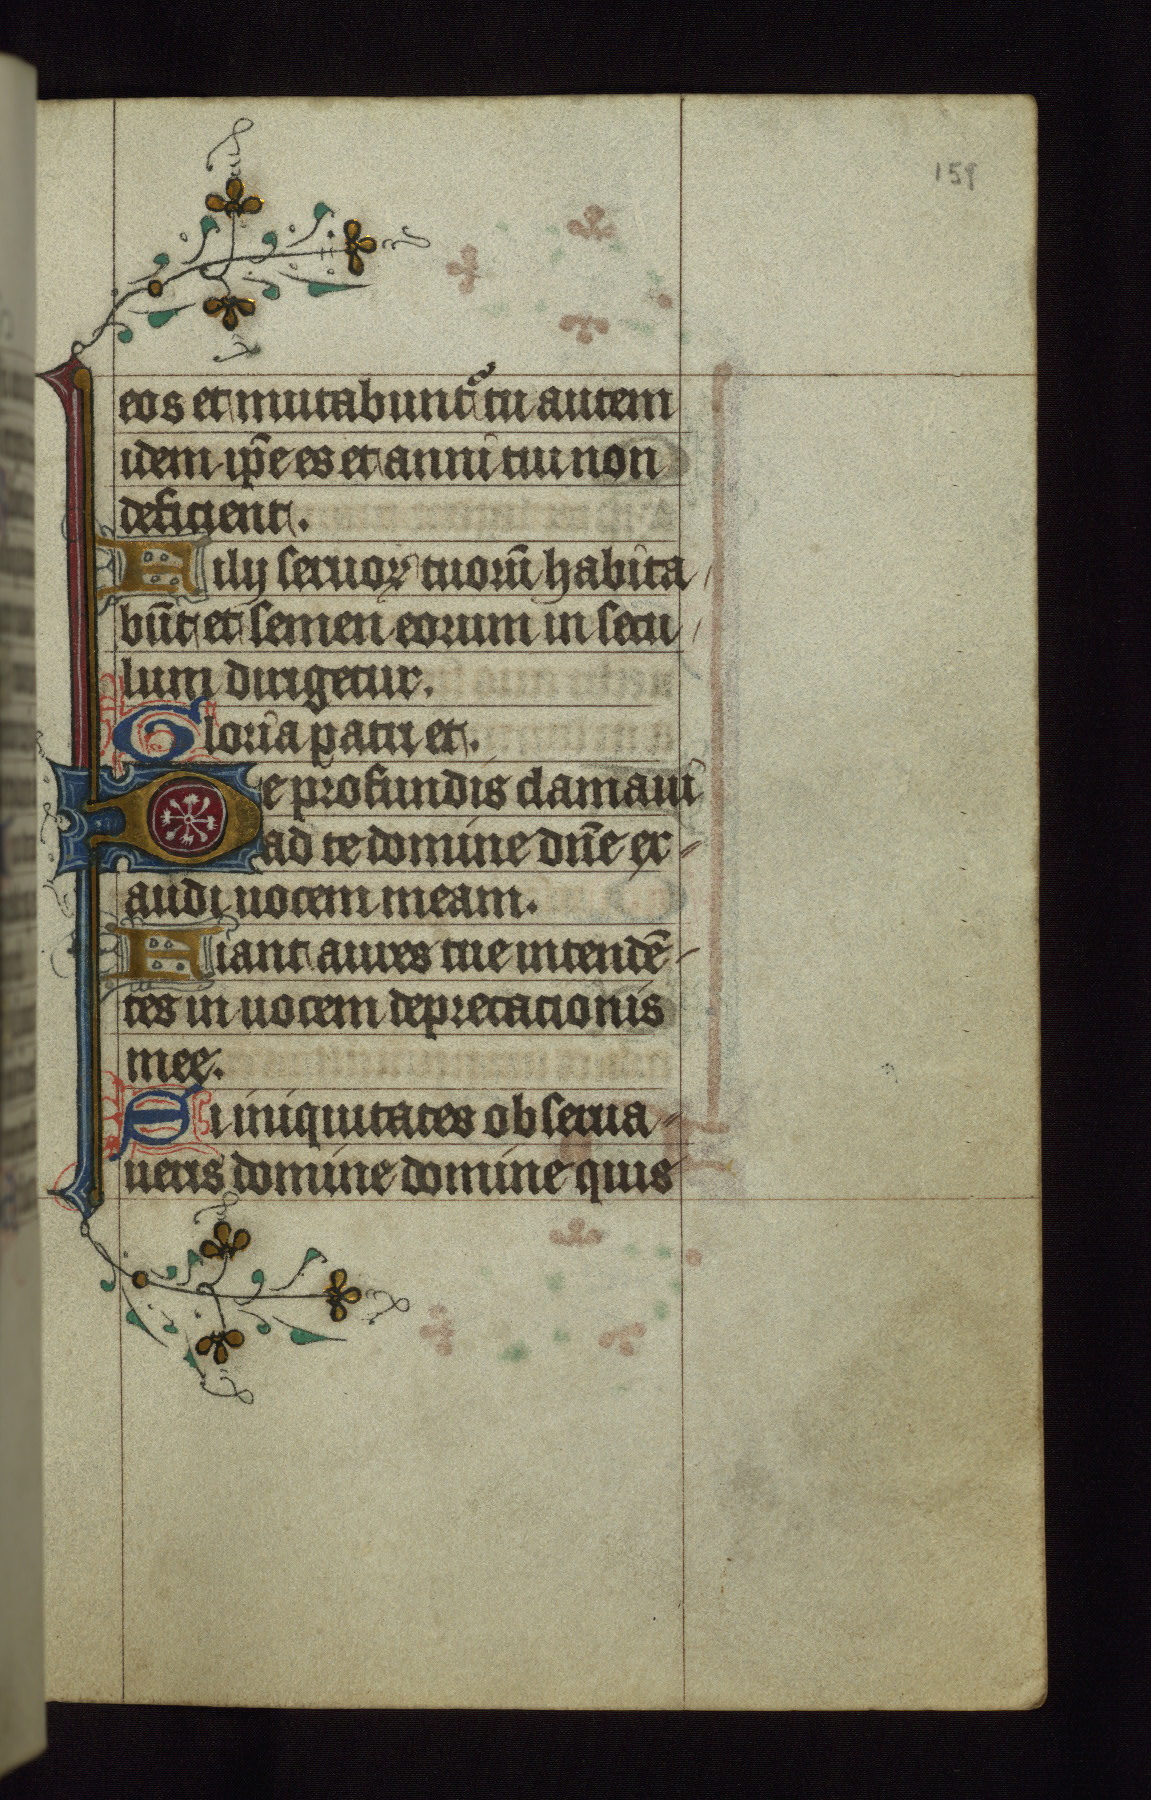 159
eos et mutabunt᷑ tu autem
idem ip̄e es et anni tui non
deficient.
Filij seruoꝝ tuoꝝ̄ habita
būt et semen eorum in secu
lum dirigetur.
Gloria patri et.
De profundis clamaui
ad te domine dn̄e ex-
audi uocem meam.
Fiant aures tue intendē-
tes in uocem deprecationis
mee.
Si iniquitates obserua-
ueris domine domine quis